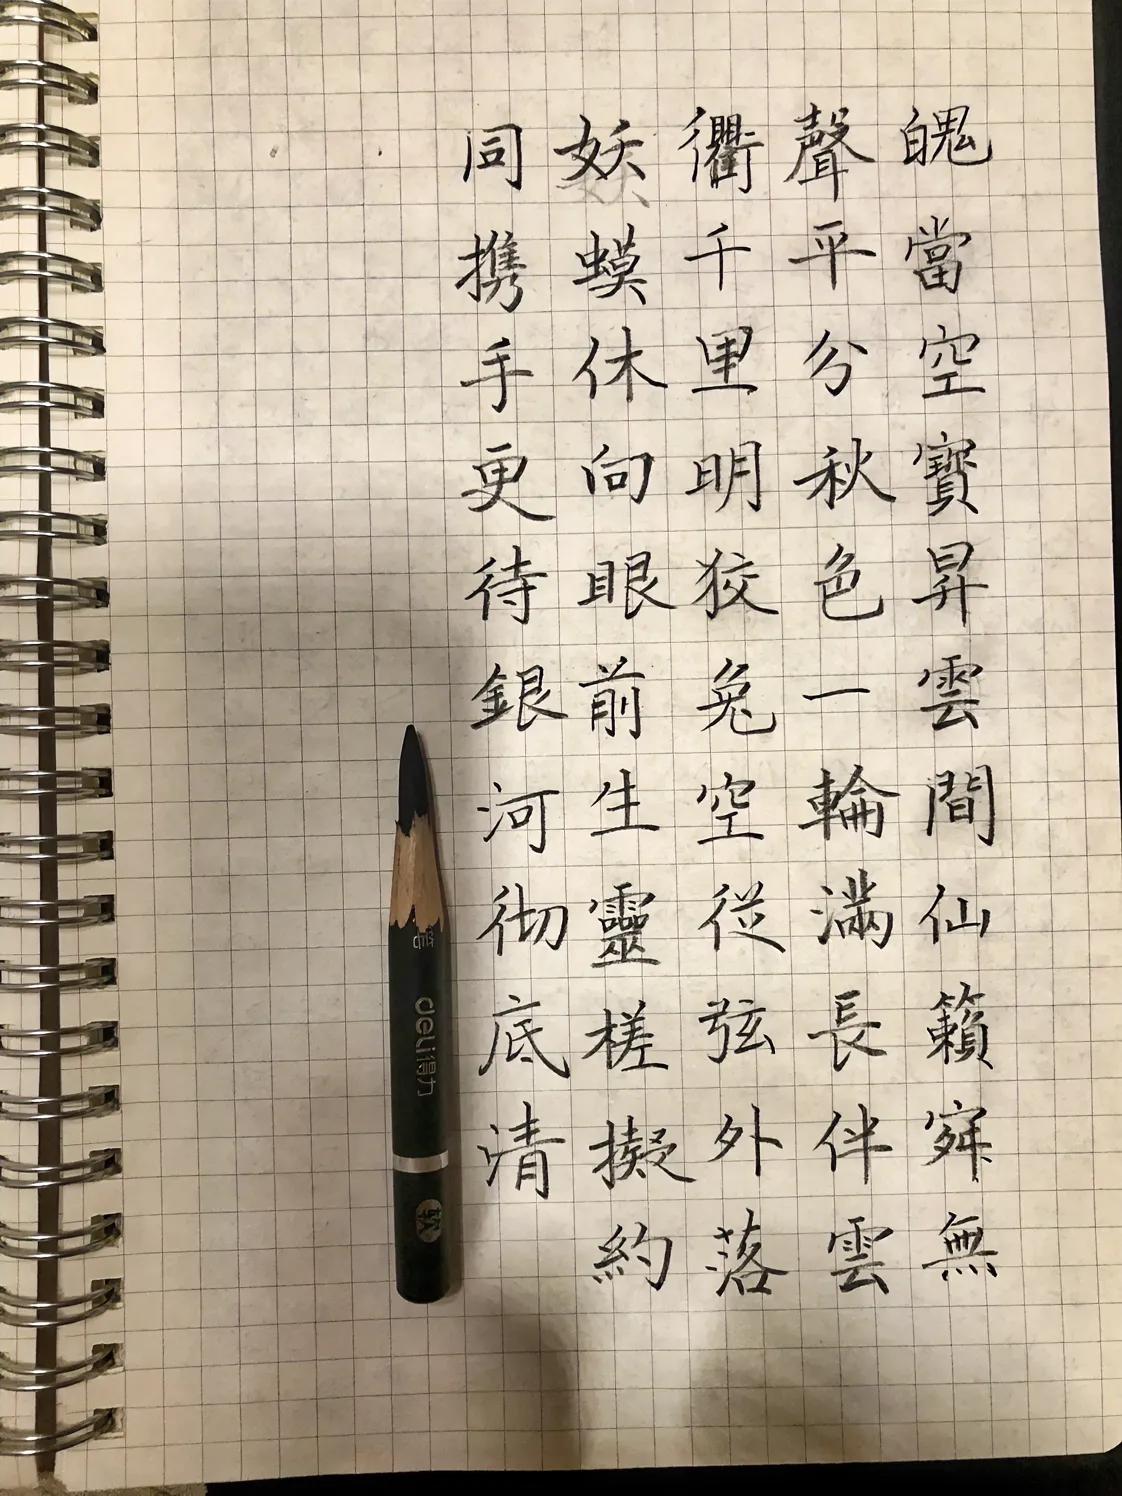 魄當空寶昇雲間仙籟寂無
聲平分秋色一輪滿長伴雲
衢千里明狡兔空従弦外落
妖蟆休向眼前生靈槎擬約
同携手更待銀河彻底清
deli得力
软